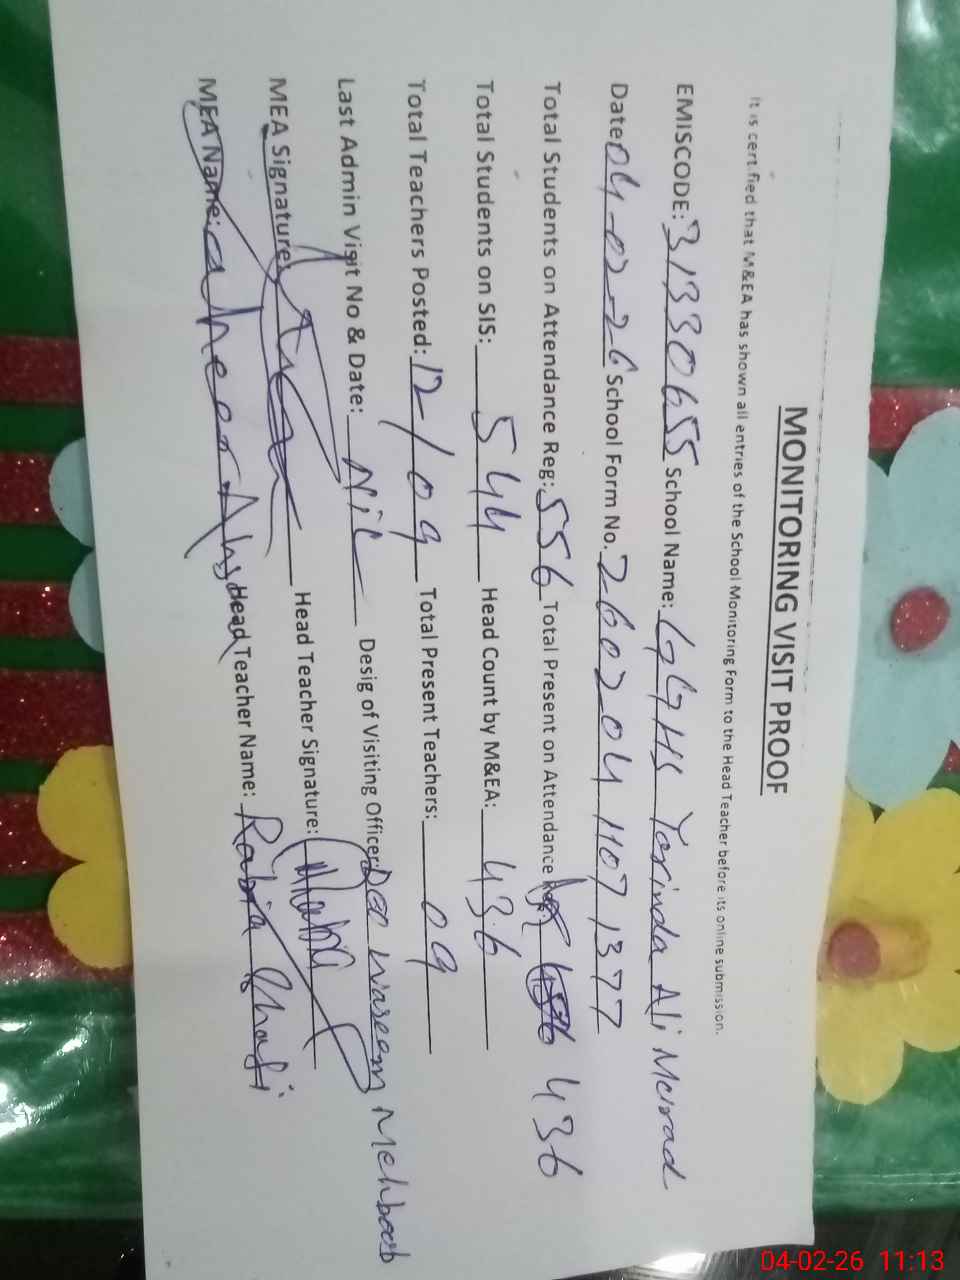 MONITORING VISIT PROOF
It is certified that M&EA has shown all entries of the School Monitoring Form to the Head Teacher before its online submission.
EMISCODE: 31330655 School Name: GGHS Tarinda Ali Murad
Date 04-02-26 School Form No. 260204 1107 1377
Total Students on Attendance Reg: 556 Total Present on Attendance Reg: 436
Total Students on SIS: 544 Head Count by M&EA: 436
Total Teachers Posted: 12/09 Total Present Teachers: 09
Last Admin Visit No & Date: Nil Desig of Visiting Officer: Waseem Mehboob
MEA Signature: Head Teacher Signature:
MEA Name: Head Teacher Name: Rabia Shafi
04-02-26 11:13